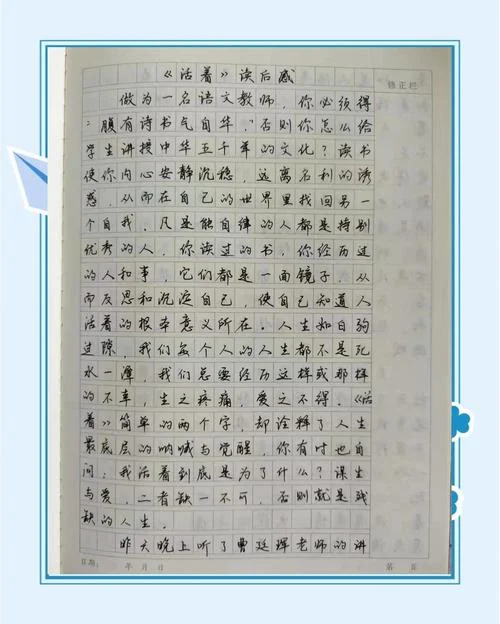 《活着》读后感
修正栏
做为一名语文教师，你必须得
"腹有诗书气自华"，否则你怎么给
学生讲授中华五千年的文化？读书
使你内心安静沉稳，远离名利的诱
惑，从而在自己的世界里找回另一
个自我。凡是能自律的人都是特别
优秀的人，你读过的书，你经历过
的人和事，它们都是一面镜子，从
而反思和沉淀自己，使自己知道人
活着的根本意义所在。人生如白驹
过隙，我们每个人的人生都不是死
水一潭，我们总要经历这样或那样
的不幸，生之疼痛，爱之不得。《活
着》简单的两个字，却诠释了人生
最底层的呐喊与觉醒，你有时也自
问：我活着到底是为了什么？谋生
与爱，二者缺一不可，否则就是残
缺的人生。
昨天晚上听了曹廷珲老师的讲
日期： 年 月 日 第 页